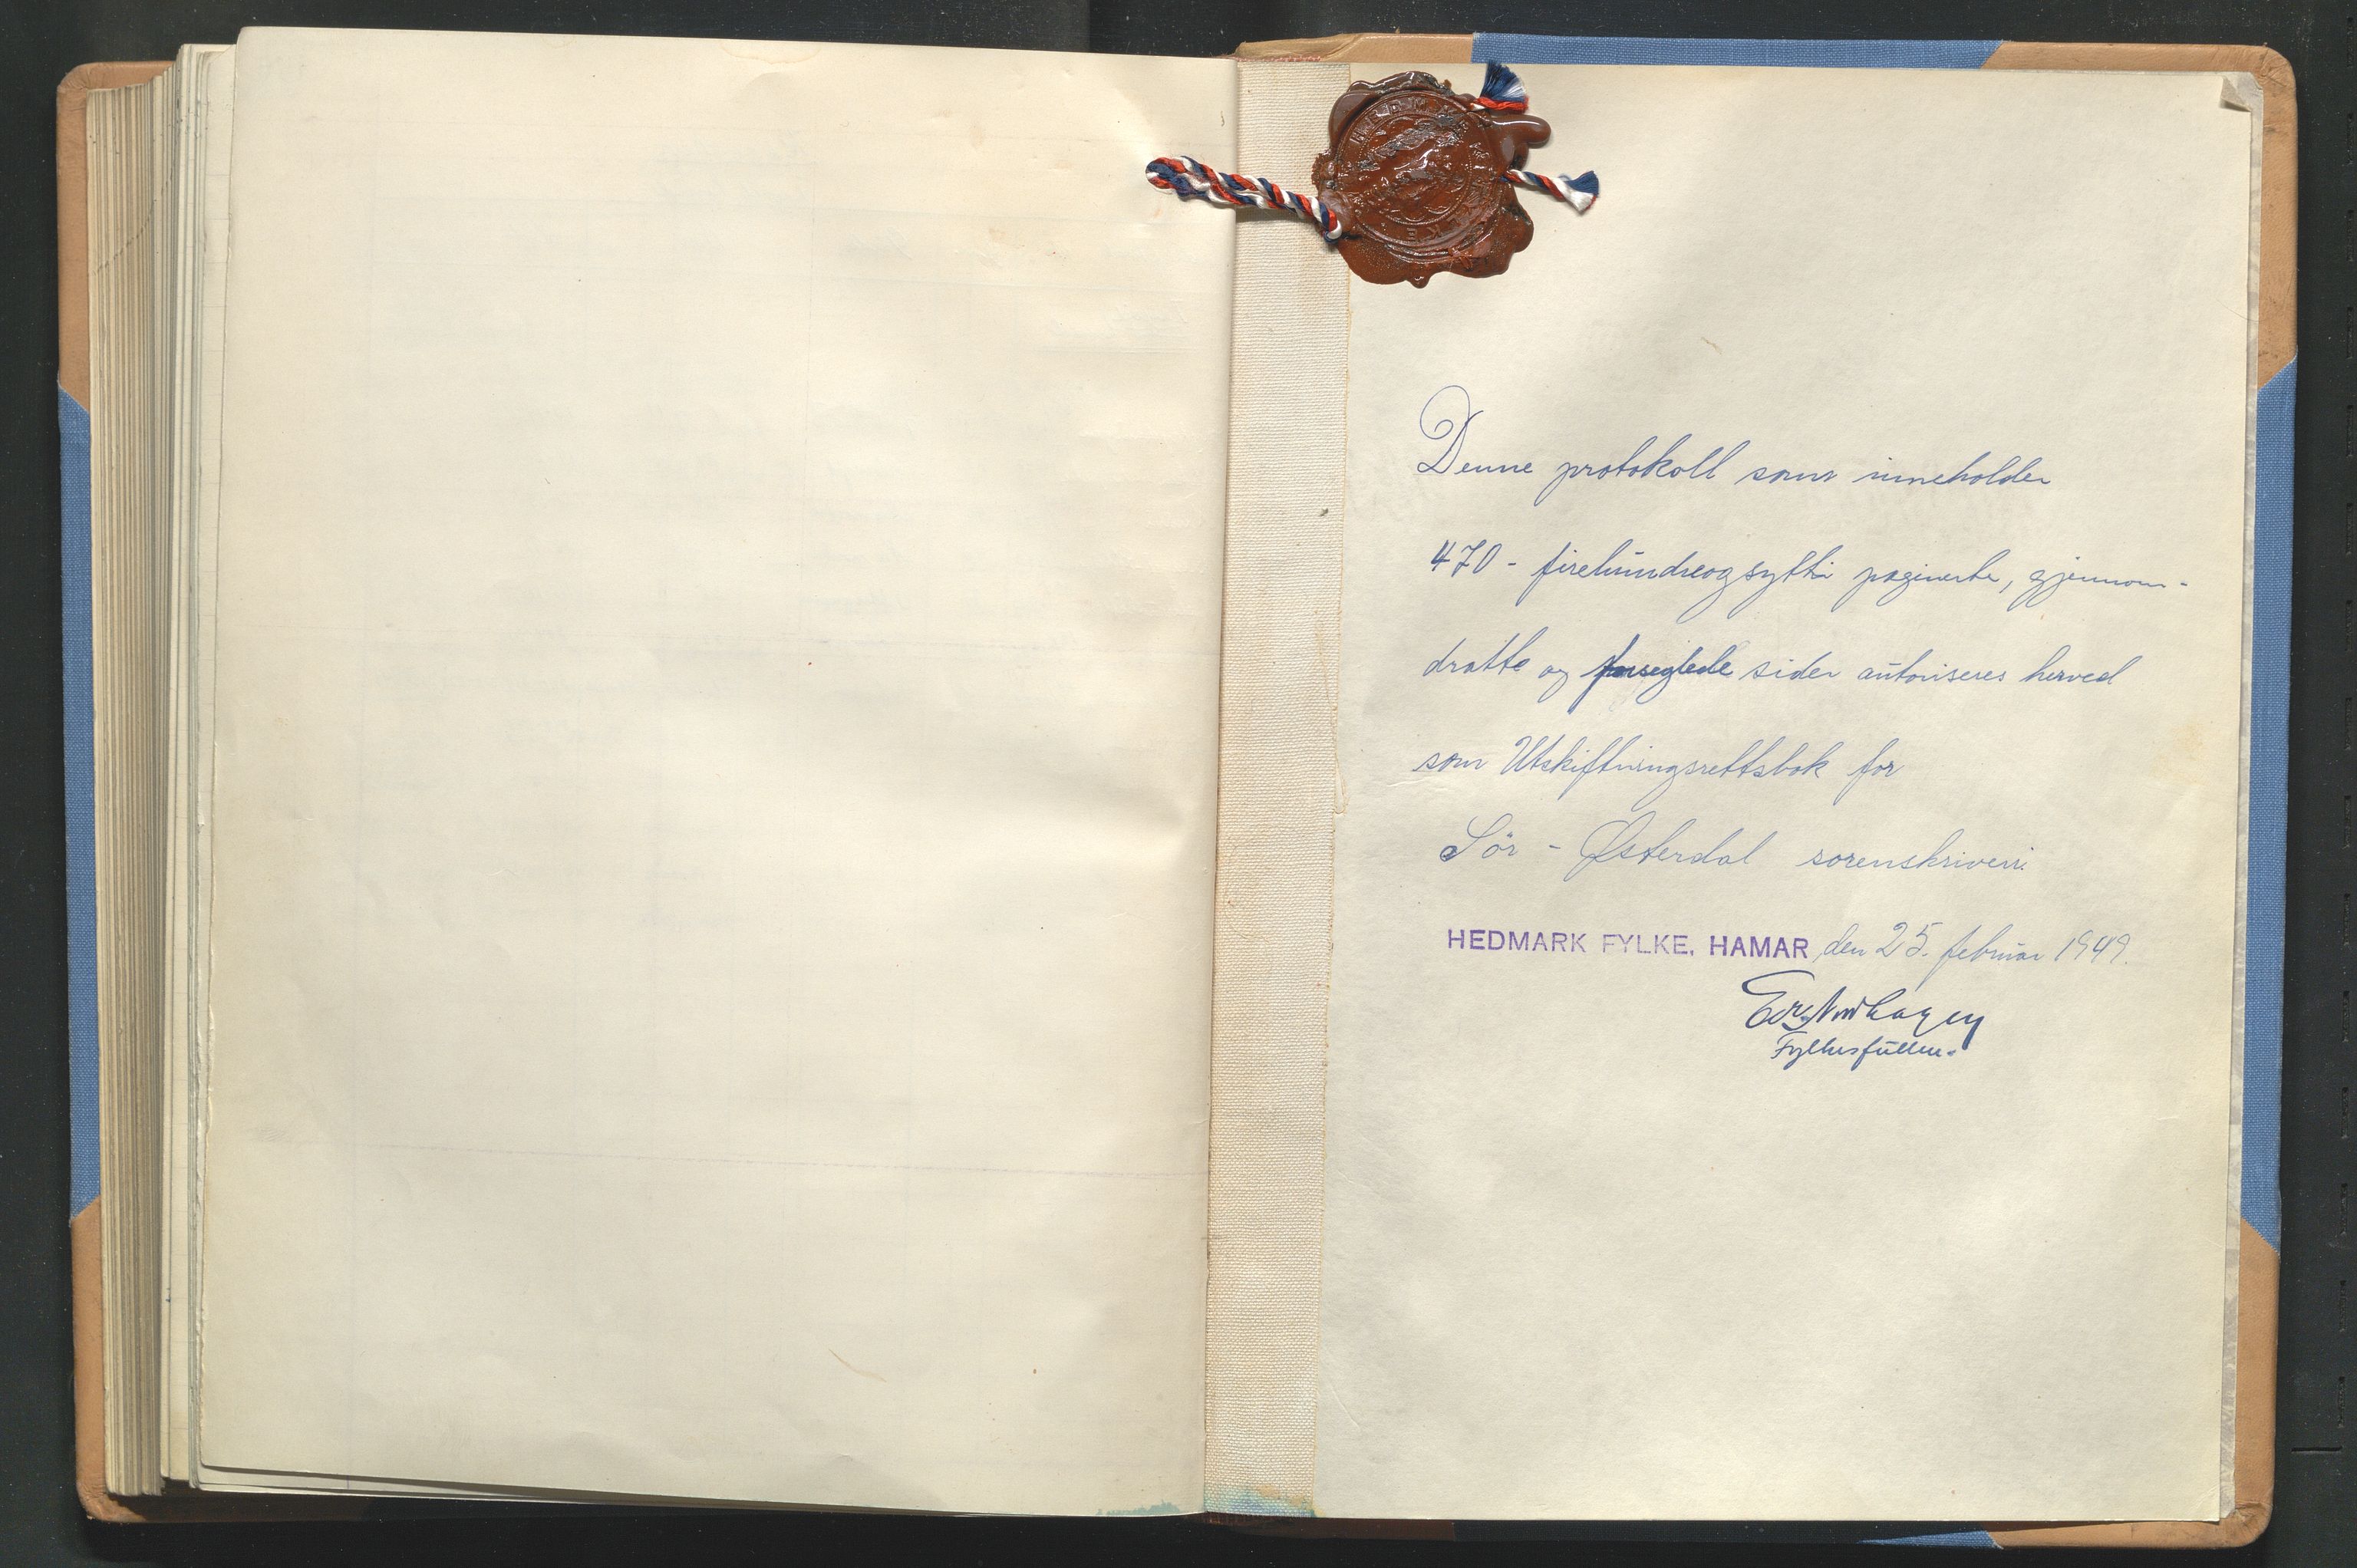 Denne protokoll som inneholder
470 - firehundreogsytti paginerte, gjennom-
dratte og forseglede sider autoriseres herved
som Utskiftningsrettsbok for
Sör - Østerdal sorenskriveri.
HEDMARK FYLKE, HAMAR den 25. februar 1949.